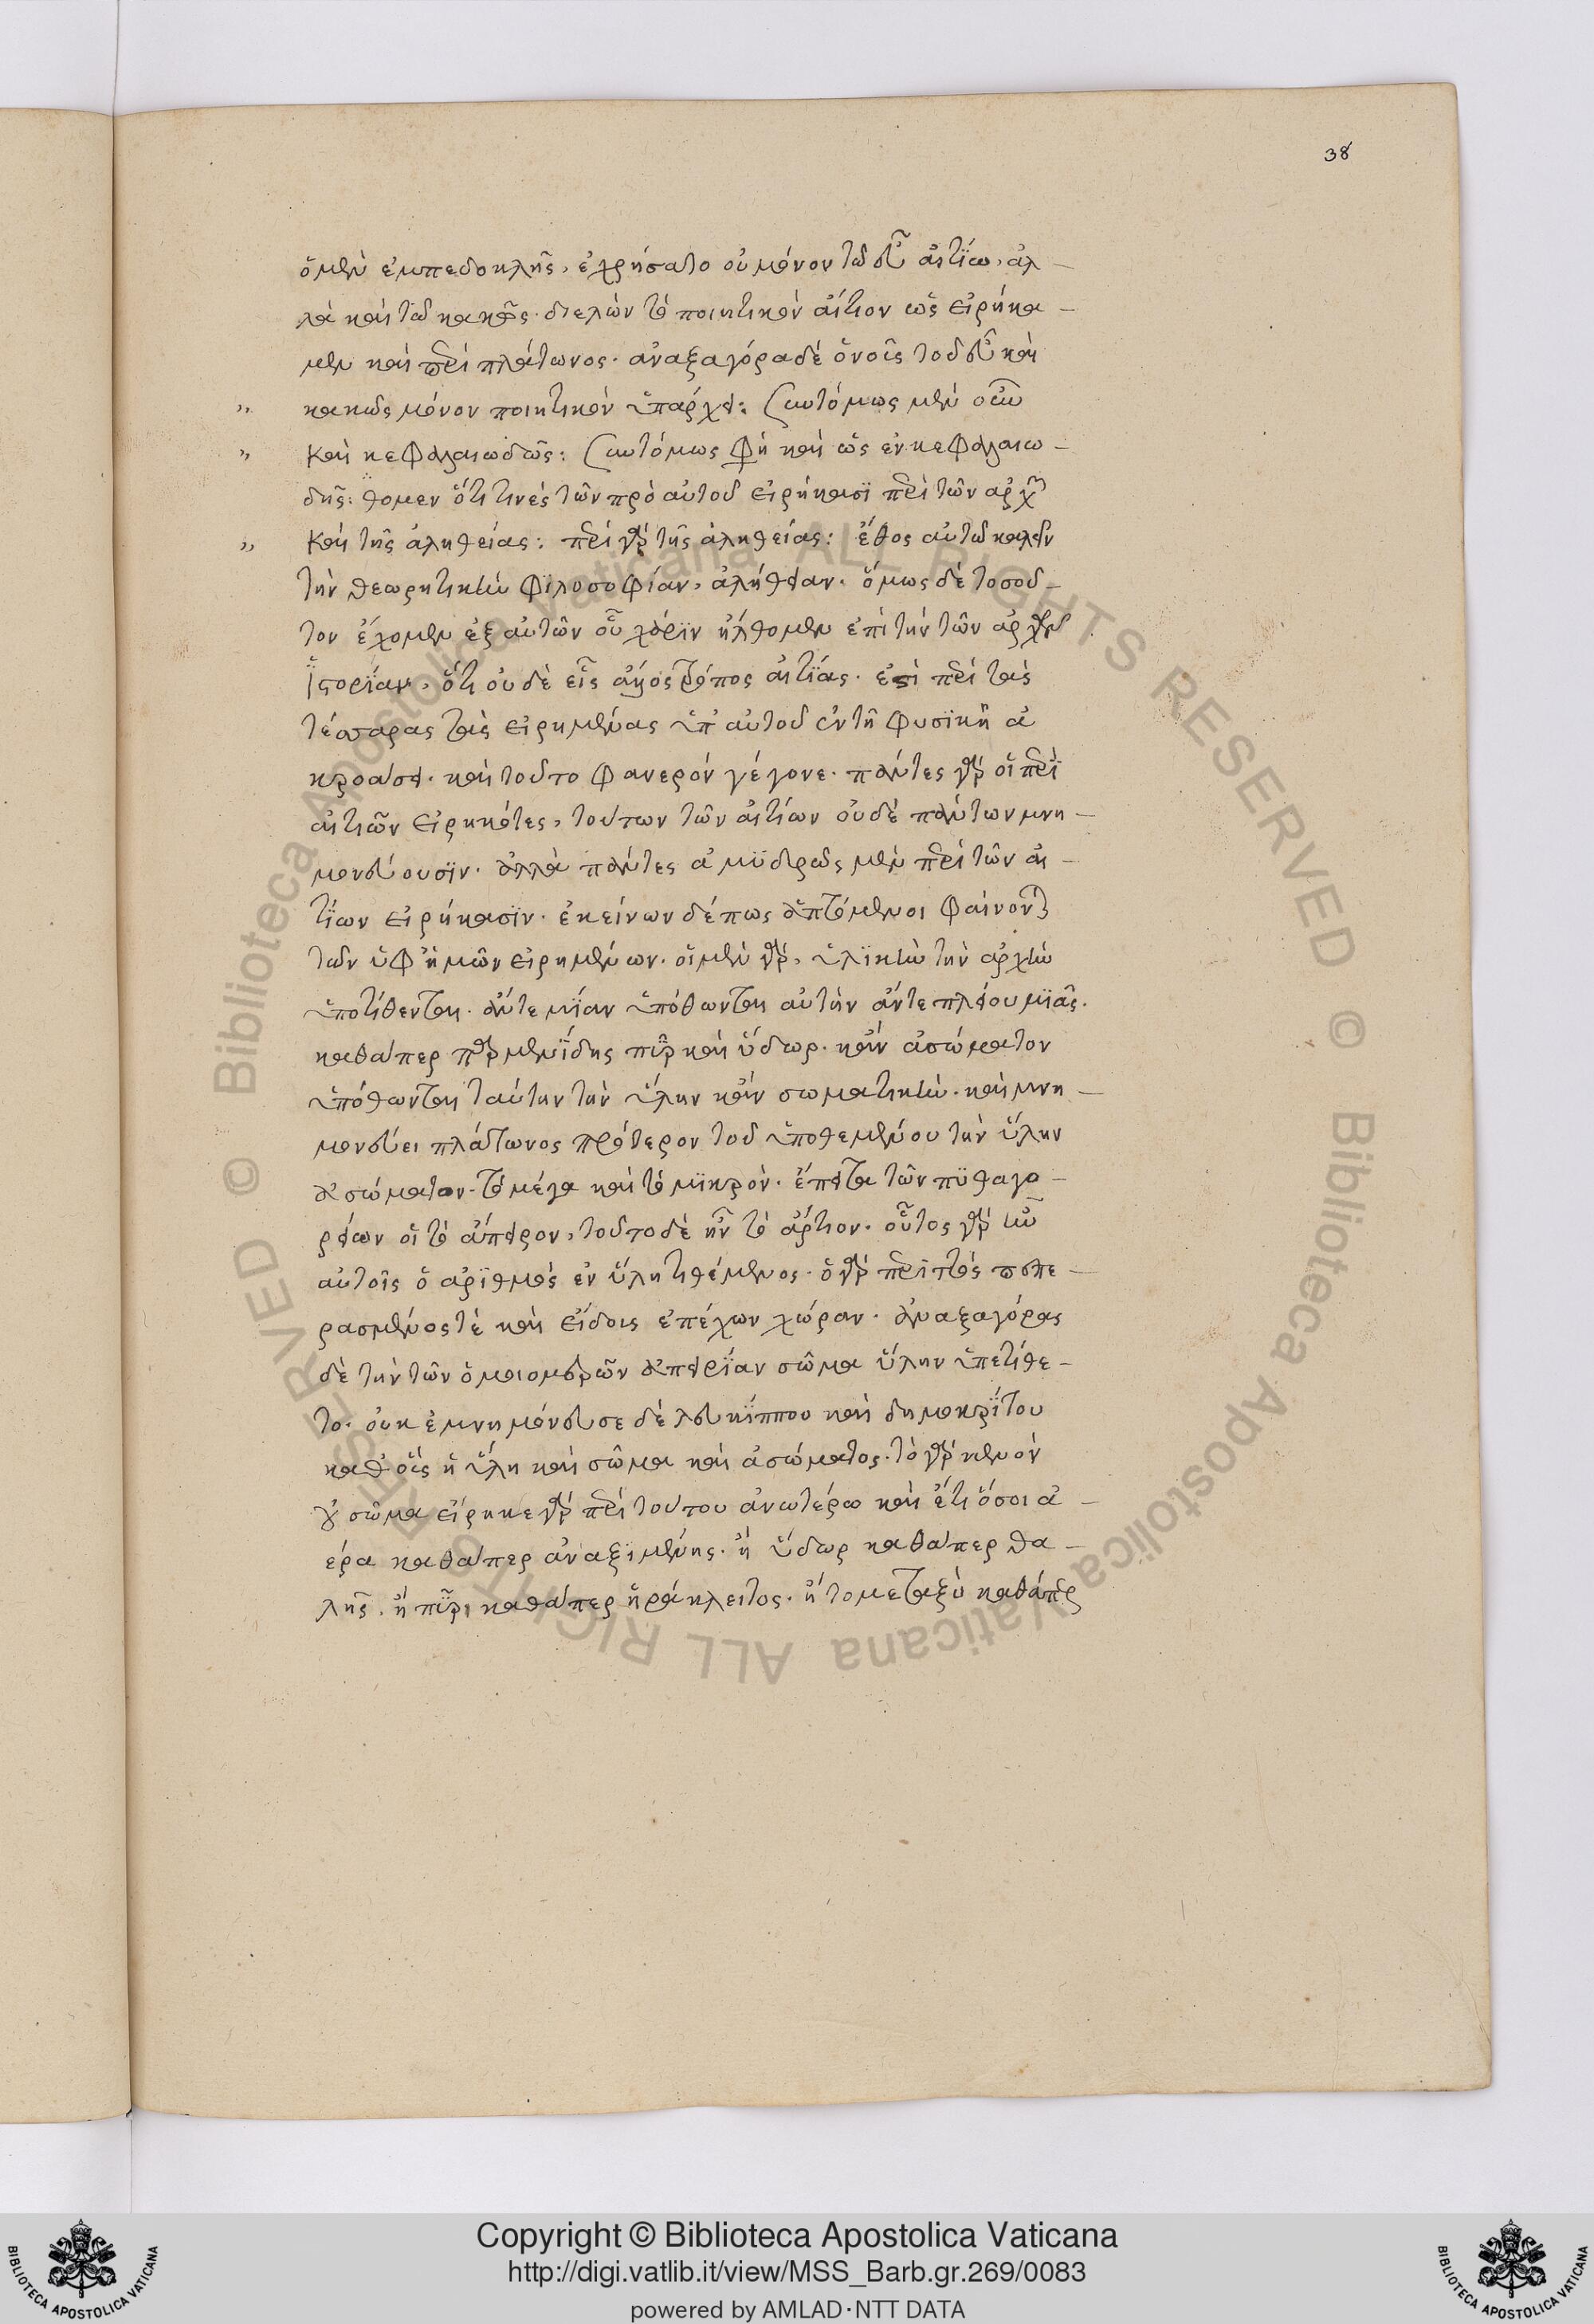 38
ὁ μὲν ἐμπεδοκλῆς, ἐχρήσατο οὐ μόνον τῶ εὖ αἰτίω, ἀλ-
λὰ καὶ τῶ κακῶς. διελὼν τὸ ποιητικὸν αἴτιον ὡς εἰρήκα-
μεν καὶ περὶ πλάτωνος. ἀναξαγόρα δὲ ὁ νοῦς τοῦ εὖ καὶ
κακῶς μόνον ποιητικὸν ὑπάρχει: συντόμως μὲν οὖν
καὶ κεφαλαιωδῶς: συντόμως φη καὶ ὡς ἐν κεφαλαιω-
δης: θομεν ὅτι τινὲς τῶν πρὸ αὐτοῦ εἰρήκασϊ περὶ τῶν ἀρχῶν
καὶ τῆς ἀληθείας: περὶ γὰρ τῆς ἀληθείας: ἔθος αὐτῶ καλεῖν
τὴν θεωρητικὴν φϊλοσοφίαν, ἀλήθειαν. ὅμως δὲ τοσοῦ-
τον ἔχομεν ἐξ αὐτῶν οὗ χάρϊν ἤλθομεν ἐπὶ τὴν τῶν ἀρχῶν
ἱστορίαν, ὅτι οὐδὲ εἷς ἄλλος τρόπος αἰτϊας. ἐστὶ περὶ τὰς
τέσσαρας τὰς εἰρημένας ὑπ αὐτοῦ ἐν τῆ φυσϊκῆ ἀ
κροάσει. καὶ τοῦτο φανερὸν γέγονε. πάντες γὰρ οἱ περὶ
αἰτιῶν εἰρηκότες, τούτων τῶν αἰτίων οὐδὲ πάντων μνη-
μονεύουσϊν. ἀλλὰ πάντες ἀμϋδρῶς μὲν περὶ τῶν αἰ-
τίων εἰρήκασϊν. ἐκείνων δέ πως ἁπτόμενοι φαίνονται
τῶν ὑφ ἡμῶν εἰρημένων. οἱ μὲν γὰρ, ὑλϊκὴν τὴν ἀρχὴν
ὑποτίθενται. ἄντε μϊαν ὑπόθωνται αὐτὴν ἄντε πλείου μϊᾶς.
καθάπερ παρμενϊδης πῦρ καὶ ὕδωρ. κἂν ἀσώματον
ὑπόθωνται ταύτην τὴν ὕλην κἂν σωματικὴν. καὶ μνη-
μονεύει πλάτωνος πρότερον τοῦ ὑποθεμένου τὴν ὕλην
ἀσώματον. τὸ μέγα καὶ τὸ μϊκρὸν. ἔπειτα τῶν πϋθαγο-
ρείων οἳ τὸ ἄπειρον, τοῦτο δὲ ἦν τὸ ἄρτιον. οὗτος γὰρ ἦν
αὐτοῖς ὁ ἀρϊθμὸς ἐν ὕλη τιθέμενος. ὁ γὰρ περιττὸς πεπε-
ρασμένος τὲ καὶ εἴδους ἐπέχων χώραν. ἀναξαγόρας
δὲ τὴν τῶν ὁμοιομερῶν ἀπειρϊαν σῶμα ὕλην ὑπετίθε-
το. οὐκ ἐμνημόνευσε δὲ λευκϊππου καὶ δημοκρϊτου
καθ οἷς ἡ ὕλη καὶ σῶμα καὶ ἀσώματος. τὸ γὰρ κενὸν
οὐ σῶμα εἴρηκε γὰρ περὶ τούτου ἀνωτέρω καὶ ἔτι ὅσοι ἀ-
έρα καθάπερ ἀναξϊμένης. ἢ ὕδωρ καθάπερ θα-
λῆς. ἢ πῦρ καθάπερ ἡράκλειτος. ἢ τὸ μεταξὺ καθάπερ
Copyright © Biblioteca Apostolica Vaticana
http://digi.vatlib.it/view/MSS_Barb.gr.269/0083
powered by AMLAD·NTT DATA